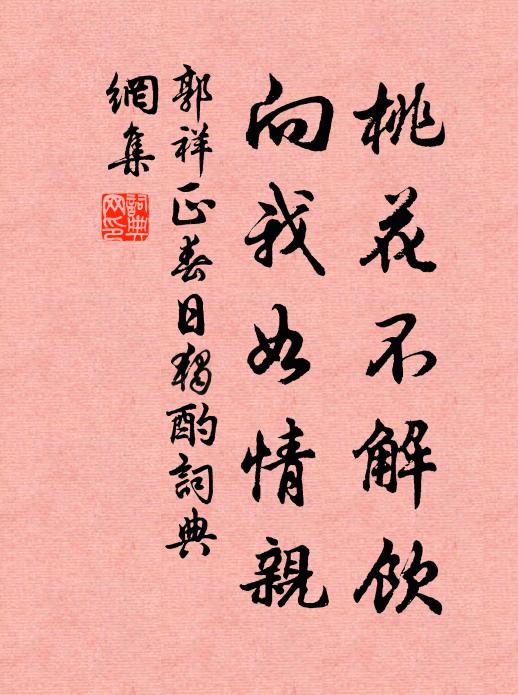 桃花不解飲
向我如情親
郭祥正春日獨酌詞典
網集
詞典網印